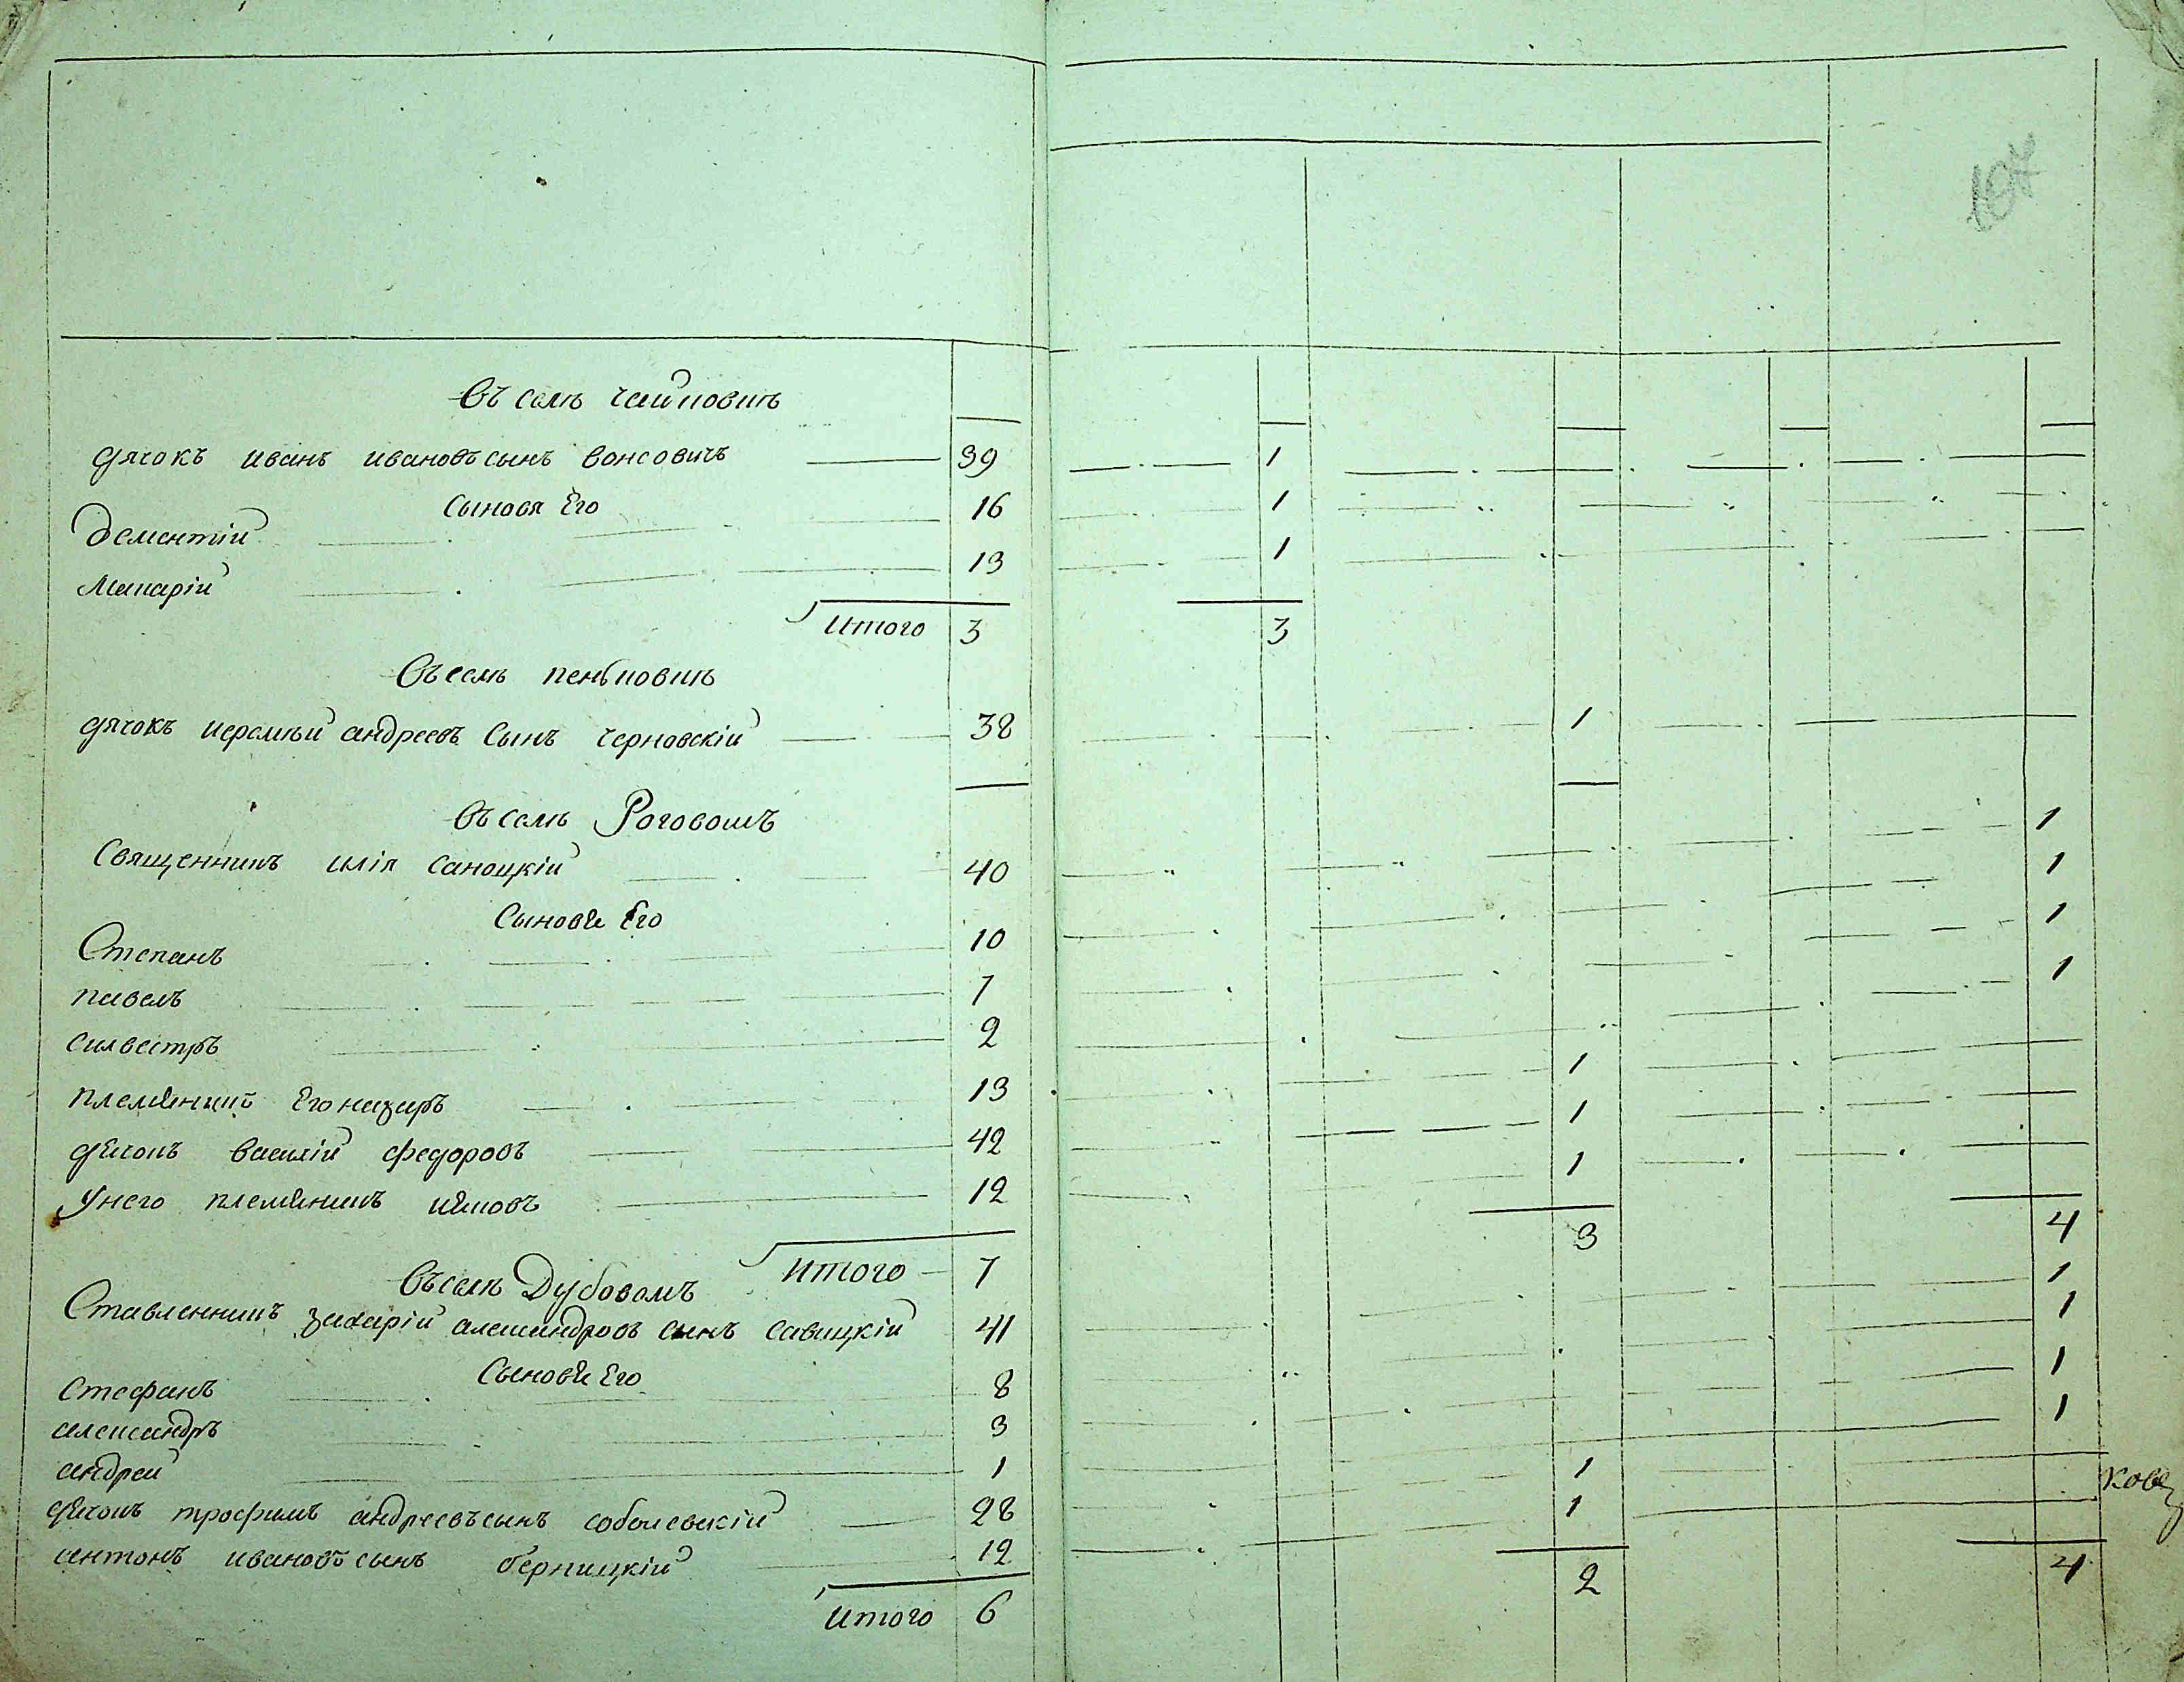 107
Въ селѣ чайковкѣ
дячокъ иванъ ивановъ сынъ вонсовичъ 39 1
Сыновя Его
Дементій 16 1
Макарій 13 1
Итого 3 3
Въ селѣ пеньковкѣ
дячокъ иеремѣй андреевъ Сынъ черновскій 38 1
Въ селѣ Роговомъ
Священникъ илія Саноцкій 40 1
Сыновѧ Его
Степанъ 10 1
павелъ 7 1
силвестръ 2 1
племѧнникъ Его назаръ 13 1
дѧчокъ василій федоровъ 42 1
У него племѧникъ ѧковъ 12 1
Итого 7 3 4
Въ селѣ Дубовомъ
Ставленникъ захарій александровъ сынъ савицкій 41 1
Сыновѧ Его
Стефанъ 8 1
александръ 3 1
андрей 1 1
дѧчокъ трофимъ андреевъ сынъ соболевскій 28 1
антонъ ивановъ сынъ берницкій 12 1
Итого 6 2 4